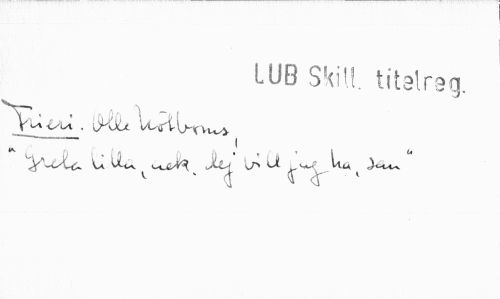 LUB Skill. titelreg.
Frieri. Olle Nötboms,
"Greta lilla, nek. Dej vill jag ha, san"